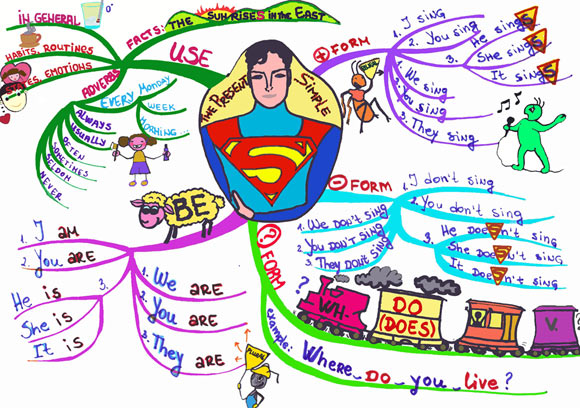 THE PRESENT SIMPLE
S
USE
IN GENERAL
HABITS, ROUTINGS
STATES, EMOTIONS
FACTS: THE SUN RISES IN THE EAST
ADVERBS
EVERY MONDAY
WEEK
MORNING...
ALWAYS
USUALLY
OFTEN
SOMETIMES
SELDOM
NEVER
+ FORM
1. I sing
2. You sing
3. He singS
She singS
It singS
1. We sing
2. You sing
3. They sing
- FORM
1. I don't sing
2. You don't sing
3. He doeSn't sing
She doeSn't sing
It doeSn't sing
1. We don't sing
2. You don't sing
3. They don't sing
BE
1. I AM
2. You ARE
3. He is
She is
It is
1. We ARE
2. You ARE
3. They ARE
PLURAL
? FORM
?
WH-
DO
(DOES)
V.
example: Where DO you live?